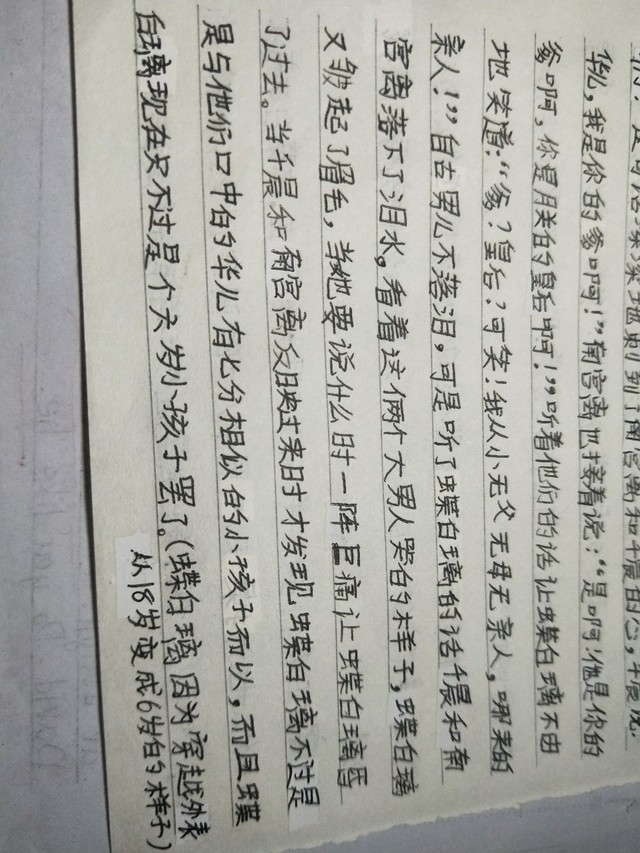 华儿，我是你的爹啊！”南宫离也接着说：“是啊！他是你的
爹啊，你是朕的皇后啊！”听着他们的话让蝶白璃不由
地笑道：“爹？皇后？可笑！我从小无父无母无亲人，哪来的
亲人！”自古男儿不落泪，可是听了蝶白璃的话千晨和南
宫离落下了泪水。看着这俩个大男人哭的样子，蝶白璃
又皱起了眉毛，当她要说什么时一阵巨痛让蝶白璃昏
了过去。当千晨和南宫离反映过来时才发现蝶白璃不过是
是与他们口中的华儿有七分相似的小孩子而以，而且蝶
白璃现在只不过是个六岁小孩子罢了。（蝶白璃因为穿越外表
从18岁变成6岁的样子）